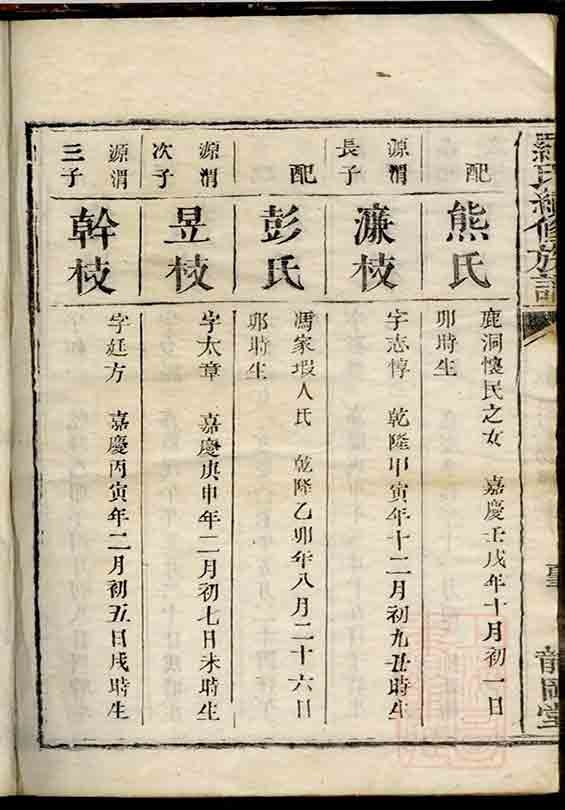 羅氏續修族譜
配
熊氏
鹿洞懷民之女 嘉慶壬戌年十月初一日
卯時生
源渭
長子
濂枝
字志惇 乾隆甲寅年十二月初九丑時生
配
彭氏
馮家塅人氏 乾隆乙卯年八月二十六日
卯時生
源渭
次子
昱枝
字太章 嘉慶庚申年二月初七日未時生
源渭
三子
幹枝
字廷方 嘉慶丙寅年二月初五日戌時生